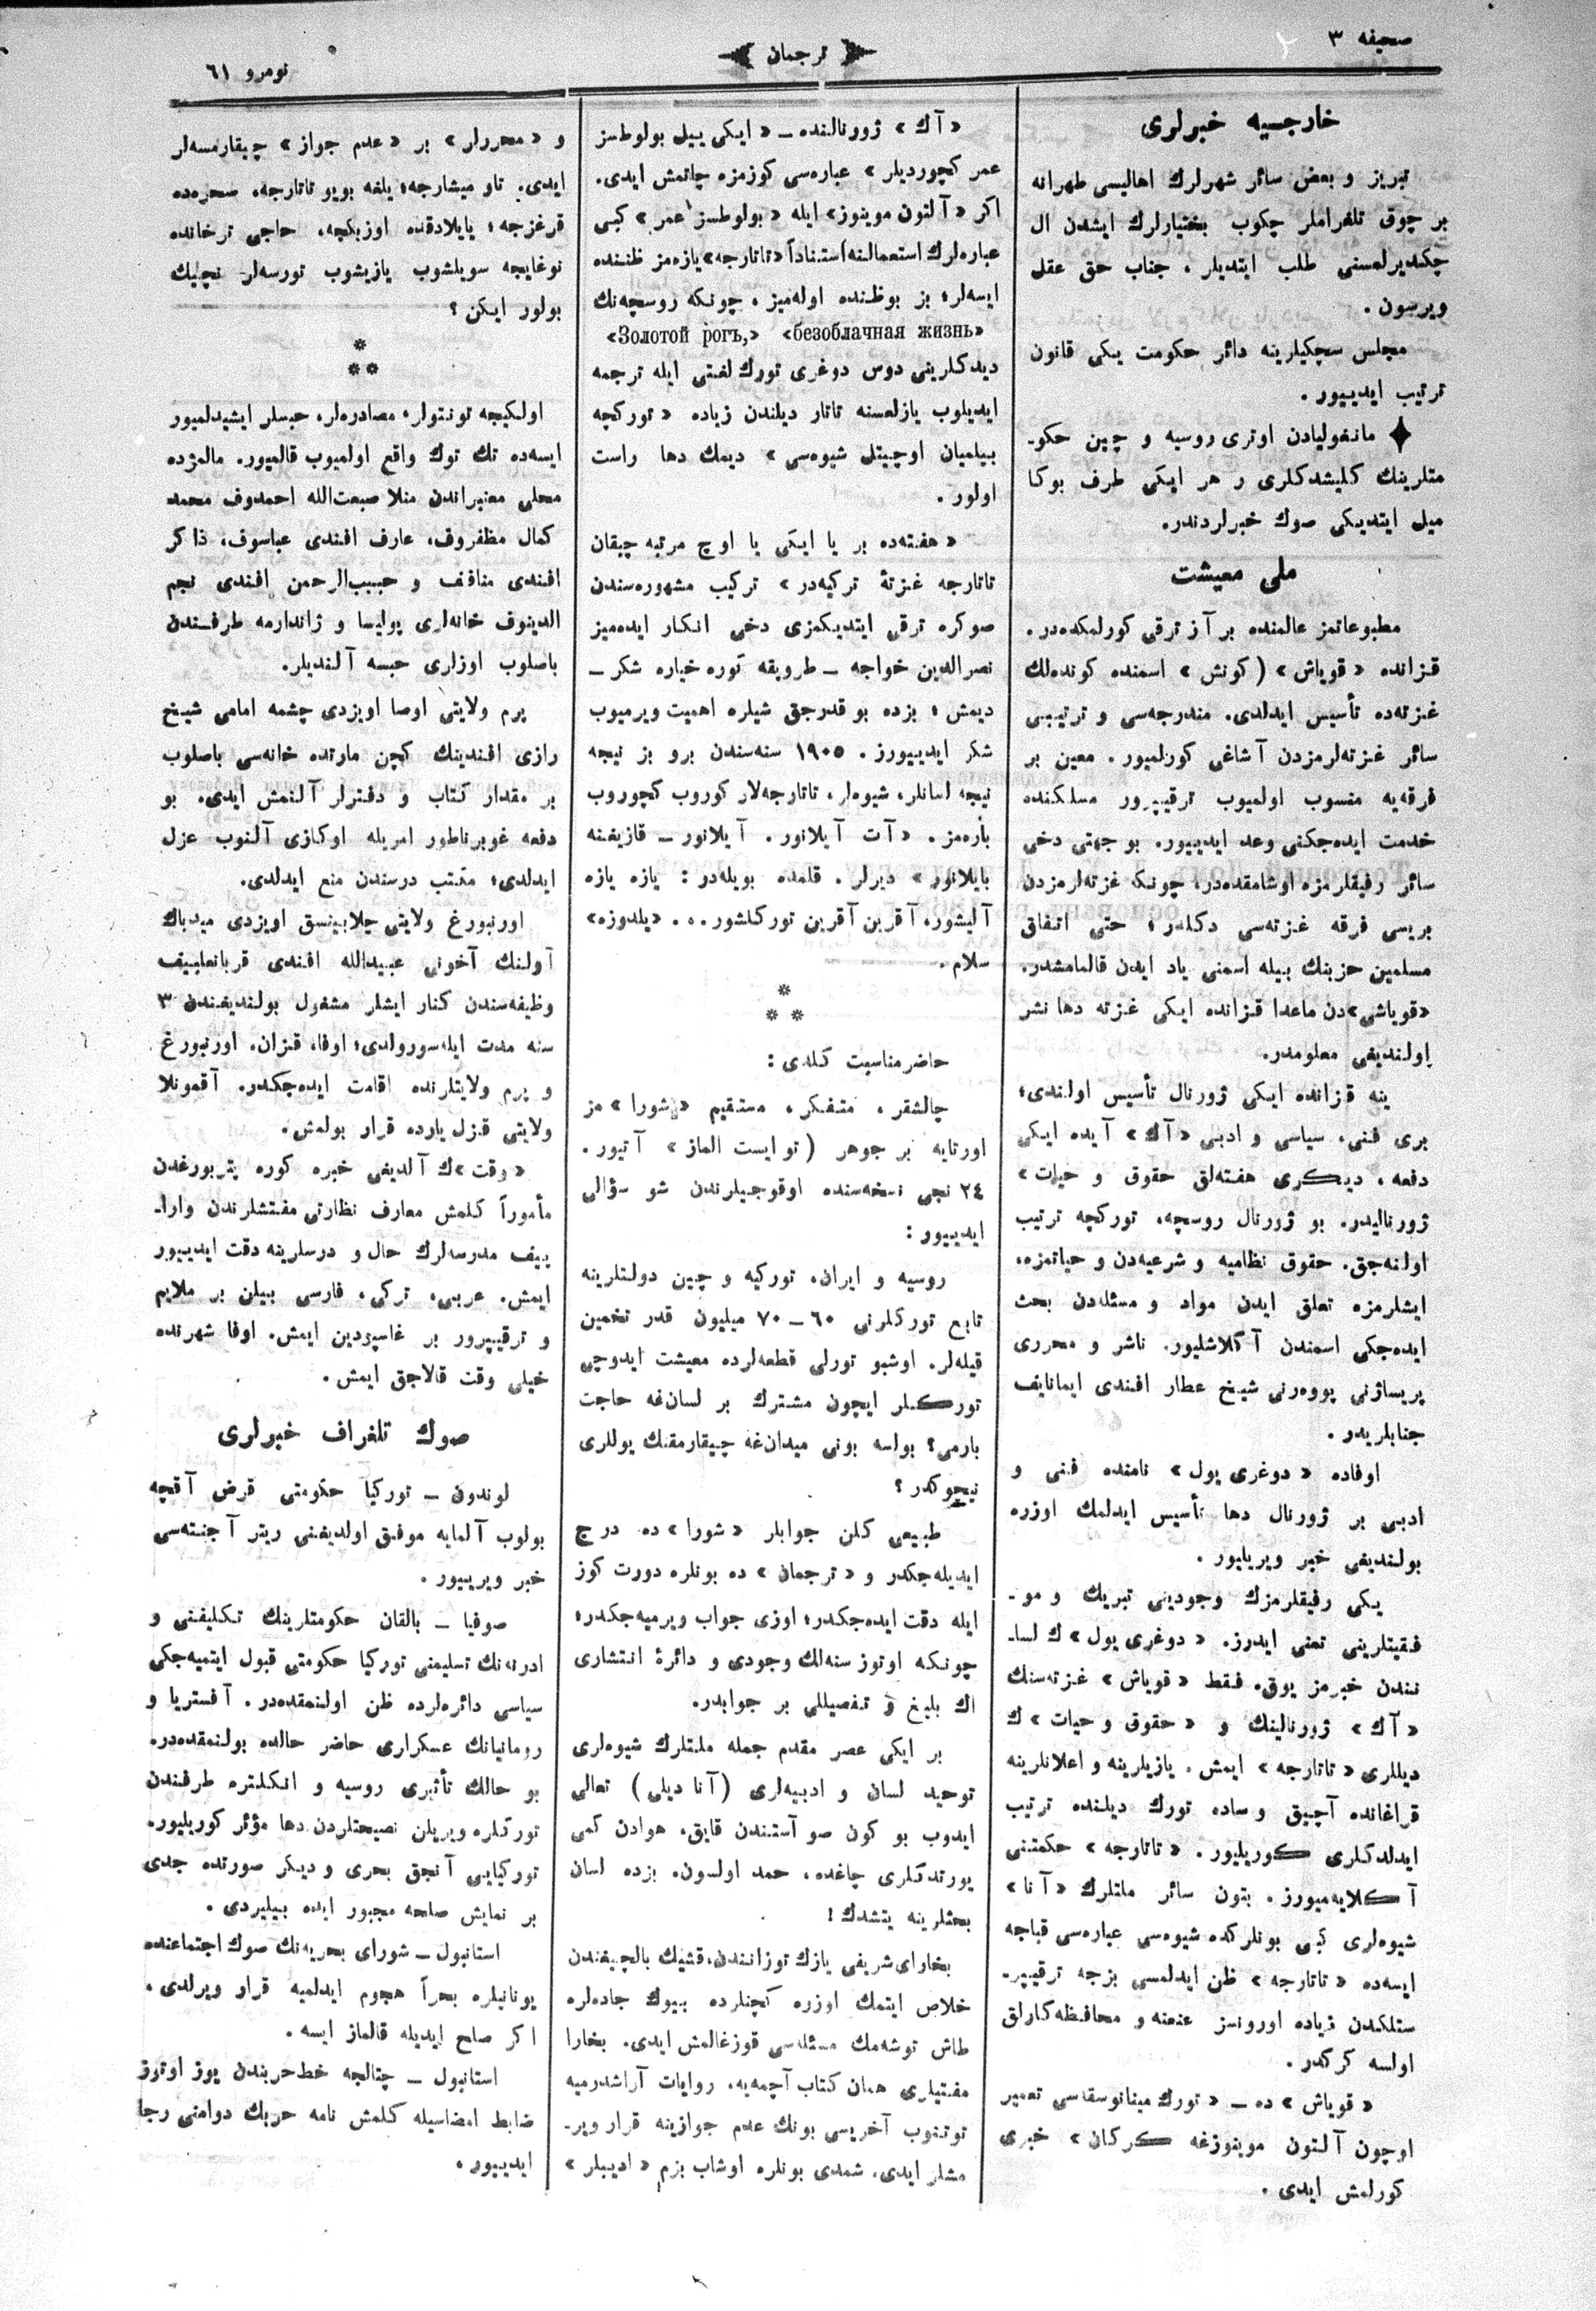 صحیفه ٣
ترجمان
نومرو ٦١
خارجیه خبرلری
تبریز و بعض سائر شهرلرك اهالیسی طهرانه
بر چوق تلغراملر چكوب بختیارلرك ایشدن ال
چكدیرلمسنی طلب ایتدیلر ، جناب حق عقل
ویرسون .
مجلس سچكیلرینه دائر حكومت یكی قانون
ترتیب ایدییور .
مانغولیادن اوتری روسیه و چین حكو-
متلرینك كلیشدكلری و هر ایكی طرف بوكا
میل ایتدیكی صوك خبرلردندر.
ملی معیشت
مطبوعاتمز عالمنده بر آز ترقی كورلمكده‌در .
قزانده « قویاش » ( كونش ) اسمنده كونده‌لك
غزته‌ده تأسیس ایدلدی. مندرجه‌سی و ترتیبی
سائر غزته‌لرمزدن آشاغی كورلمیور . معین بر
فرقه‌یه منسوب اولمیوب ترقیپرور مسلكنده
خدمت ایده‌جكنی وعد ایدییور. بو جهتی دخی
سائر رفیقلرمزه اوشامقده‌در، چونكه غزته‌لرمزدن
بریسی فرقه غزته‌سی دكلدر؛ حتی اتفاق
مسلمین حزبنك بیله اسمنی یاد ایدن قالمامشدر.
«قویاش»دن ماعدا قزانده ایكی غزته دها نشر
اولندیغی معلومدر.
ینه قزانده ایكی ژورنال تأسیس اولندی؛
بری فنی، سیاسی و ادبی « آك » آیده ایكی
دفعه ، دیكری هفته‌لق حقوق و حیات »
ژورنالیدر. بو ژورنال روسچه، توركچه ترتیب
اولنه‌جق. حقوق نظامیه و شرعیه‌دن و حیاتمزه،
ایشلرمزه تعلق ایدن مواد و مسئله‌دن بحث
ایده‌جكی اسمندن آكلاشلیور. ناشر و محرری
پریساژنی پووه‌رنی شیخ عطار افندی ایمانایف
جنابلریدر .
اوفاده « دوغری یول » نامنده فنی و
ادبی بر ژورنال دها تأسیس ایدلمك اوزره
بولندیغی خبر ویریلیور .
یكی رفیقلرمزك وجودینی تبریك و مو-
فقیتلرینی تمنی ایدرز. « دوغری یول » ك لسا-
نندن خبرمز یوق. فقط « قویاش » غزته‌سنك
« آك » ژورنالینك و « حقوق و حیات » ك
دیللری « تاتارجه » ایمش . یازیلرینه و اعلانلرینه
قراغانده آچیق و ساده تورك دیلنده ترتیب
ایدلدكلری كوریلیور . « تاتارجه » حكمتنی
آكلایه‌میورز . بتون سائر ملتلرك « آنا »
شیوه‌لری كبی بونلركده شیوه‌سی عباره‌سی قباجه
ایسه‌ده « تاتارجه » ظن ایدلمسی بزجه ترقیپر-
ستلكدن زیاده اورونسز عنعنه و محافظه‌كارلق
اولسه كركدر .
« قویاش » ده — « تورك مینانوسقاسی تعمیر
اوچون آلتون موینوزغه كركان » خبری
كورلمش ایدی .
« آك » ژورنالنده — « ایكی ییل بولوطسز
عمر كچوردیلر » عباره‌سی كوزمزه چاتمش ایدی.
اكر « آلتون موینوز » ایله « بولوطسز عمر » كبی
عباره‌لرك استعمالنه استناداً « تاتارجه » یازه‌مز ظننده
ایسه‌لر؛ بز بوظنده اوله‌میز ، چونكه روسچه‌نك
«Золотой рогъ,» «безоблачная жизнь»
دیدكلرینی دوس دوغری تورك لغتی ایله ترجمه
ایدیلوب یازلمسنه تاتار دیلندن زیاده « توركچه
بیلمیان اوچیتل شیوه‌سی » دیمك دها راست
اولور .
« هفته‌ده بر یا ایكی یا اوچ مرتبه چیقان
تاتارجه غزتهٔ تركیه‌در » تركیب مشهوره‌سندن
صوكره ترقی ایتدیكمزی دخی انكار ایده‌میز
نصرالدین خواجه — طرویقه كوره خیاره شكر —
دیمش ؛ بزده بو قدرجق شیلره اهمیت ویرمیوب
شكر ایدییورز . ١٩٠٥ سنه‌سندن برو بز نیجه
نیجه لسانلر، شیوه‌لر، تاتارجه‌لار كوروب كچوروب
باره‌مز . « آت آیلانور . آیلانور — قازیغنه
بایلانور » دیرلر . قلمده بویله‌در : یازه یازه
آلیشور، آقرین آقرین توركلشور . . . «یلدوزه»
سلام .
حاضر مناسبت كلدی :
چالشقر ، متفكر ، مستقیم « شورا » مز
اورتایه بر جوهر ( تو ایست الماز ) آتیور .
٢٤ نجی نسخه‌سنده اوقوجیلرندن شو سؤالی
ایدییور :
روسیه و ایران، توركیه و چین دولتلرینه
تابع توركلرنی ٦٠ — ٧٠ میلیون قدر تخمین
قیله‌لر. اوشبو تورلی قطعه‌لرده معیشت ایدوچی
توركلر ایچون مشترك بر لسان‌غه حاجت
بارمی؟ بولسه بونی میدان‌غه چیقارمقنك یوللری
نیچوكدر ؟
طبیعی كلن جوابلر « شورا » ده درج
ایدیله‌جكدر و « ترجمان » ده بونلره دورت كوز
ایله دقت ایده‌جكدر؛ اوزی جواب ویرمیه‌جكدر؛
چونكه اوتوز سنه‌لك وجودی و دائرهٔ انتشاری
اك بلیغ و تفصیللی بر جوابدر.
بر ایكی عصر مقدم جمله ملتلرك شیوه‌لری
توحید لسان و ادبیه‌لری ( آنا دیلی ) تعالی
ایدوب بو كون صو آستندن قایق، هوادن كمی
یورتدكلری چاغده ، حمد اولسون، بزده لسان
بحثلرینه یتشدك !
بخارای شریفی یازك توزانندن، قشیك بالچیغندن
خلاص ایتمك اوزره كچنلرده بیوك جاده‌لره
طاش توشه‌مك مسئله‌سی قوزغالمش ایدی. بخارا
مفتیلری همان كتاب آچمه‌یه، روایات آراشدرمیه
توتنوب آخریسی بونك عدم جوازینه قرار ویر-
مشلر ایدی. شمدی بونلره اوشاب بزم « ادیبلر »
و «محررلر» بر «عدم جواز» چیقارمسه‌لر
ایدی. تاو میشارجه؛ یلغه بویو تاتارجه، صحره‌ده
قرغزجه ؛ یایلادقنده اوزبكچه، حاجی ترخانده
نوغایچه سویلشوب یازیشوب تورسه‌لر نچیك
بولور ایكن ؟
اولكیجه تونتولر، مصادره‌لر، حبسلر ایشیدلمیور
ایسه‌ده تك توك واقع اولمیوب قالمیور. مالمژده
محلی معتبراندن منلا صبعت‌الله احمدوف محمد
كمال مظفروف، عارف افندی عباسوف، ذاكر
افندی منافف و حبیب‌الرحمن افندی نجم
الدینوف خانه‌لری پولیسا و ژاندارمه طرفندن
باصلوب اوزلری حبسه آلندیلر.
پرم ولایتی اوصا اویزدی چشمه امامی شیخ
رازی افندینك كچن مارتده خانه‌سی باصلوب
بر مقدار كتاب و دفترلر آلنمش ایدی. بو
دفعه غوبرناطور امریله اوكازی آلنوب عزل
ایدلدی؛ مكتب درسندن منع ایدلدی.
اورنبورغ ولایتی چلابینسق اویزدی میدباك
آولنك آخونی عبیدالله افندی قربانعلییف
وظیفه‌سندن كنار ایشلر مشغول بولندیغندن ٣
سنه مدت ایله سورولدی؛ اوفا، قزان، اورنبورغ
و پرم ولایتلرنده اقامت ایده‌جكدر. آقمونلا
ولایتی قزل یارده قرار بولمش.
« وقت »ك آلدیغی خبره كوره پتربورغدن
مأموراً كلمش معارف نظارتی مفتشلرندن وارا-
ییف مدرسه‌لرك حال و درسلرینه دقت ایدییور
ایمش. عربی، تركی، فارسی بیلن بر ملایم
و ترقیپرور بر غاسپودین ایمش. اوفا شهرنده
خیلی وقت قالاجق ایمش .
صوك تلغراف خبرلری
لوندون — توركیا حكومتی قرض آقچه
بولوب آلمایه موفق اولدیغنی ریتر آجنته‌سی
خبر ویرییور .
صوفیا — بالقان حكومتلرینك تكلیفنی و
ادرنه‌نك تسلیمنی توركیا حكومتی قبول ایتمیه‌جكی
سیاسی دائره‌لرده ظن اولنمقده‌در . آفستریا و
رومانیانك عسكراری حاضر حالده بولنمقده‌در.
بو حالك تأثیری روسیه و انكلتره طرفندن
توركلره ویریلن نصیحتلردن دها مؤثر كوریلیور.
توركیایی آنجق بحری و دیكر صورتده جدی
بر نمایش صلحه مجبور ایده بیلیردی .
استانبول — شورای بحریه‌نك صوك اجتماعنده
یونانیلره بحراً هجوم ایدلمیه قرار ویرلدی.
اكر صلح ایدیله قالماز ایسه .
استانبول — چتالجه خط‌حربندن یوز اوتوز
ضابط امضاسیله كلمش نامه حربك دوامنی رجا
ایدییور .